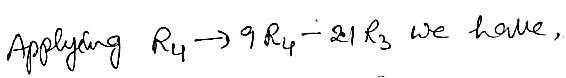 Applying R₄ → 9R₄ - 21R₃ we have,